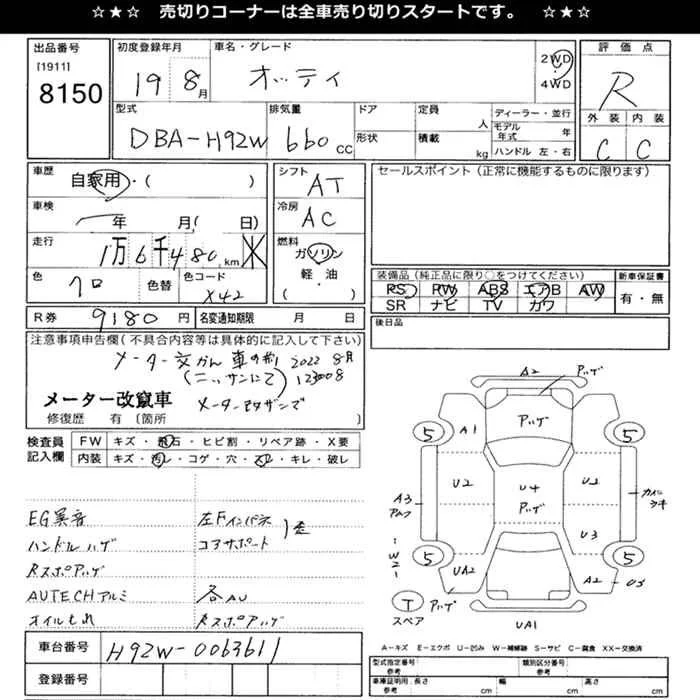 ☆★☆ 売切りコーナーは全車売り切りスタートです。 ☆★☆
出品番号
[1911]
8150
初度登録年月
19 8月
車名・グレード
オッティ
2WD
4WD
評価点
R
外装 内装
C C
型式
DBA-H92W
排気量
660 CC
ドア
形状
定員
人
積載
kg
ディーラー・並行
モデル年式 年
ハンドル 左・右
車歴
自家用・( )
車検
年 月( 日)
走行
1万6千480km
色
クロ
色替
色コード
X42
シフト
AT
冷房
AC
燃料
ガソリン
軽・油
( )
セールスポイント(正常に機能するものに限ります)
装備品(純正品に限り○をつけてください)
PS PW ABS エアB AW
SR ナビ TV カワ
新車保証書
有・無
R券 9180 円
名変通知期限 月 日
後日品
注意事項申告欄(不具合内容等は具体的に記入して下さい)
メーター交かん車の為 2022 8月
(ニッサンにて) 123008
メーター改竄車
修復歴 有 〔箇所 〕
検査員記入欄
FW キズ・飛石・ヒビ割・リペア跡・X要
内装 キズ・汚レ・コゲ・穴・スレ・キレ・破レ
EG異音
ハンドルハゲ
Rスポアハゲ
AUTECHアルミ
オイルもれ
左Fインパネ
コアサポート
歪
各AU
Rスポアハゲ
車台番号
H92W-0063611
登録番号
A2
アハゲ
A1
アハゲ
5
5
U2
U4
アハゲ
U2
A3
カイニ
キキ
W2
U3
5
5
UA2
A2
U3
T
スペア
アハゲ
UA1
A-キズ E-エクボ U-凹み W-補修跡 S-サビ C-腐食 XX-交換済
型式指定番号
参考
類別区分番号
参考
車庫証明用
参考
長さ cm
幅 cm
高さ cm